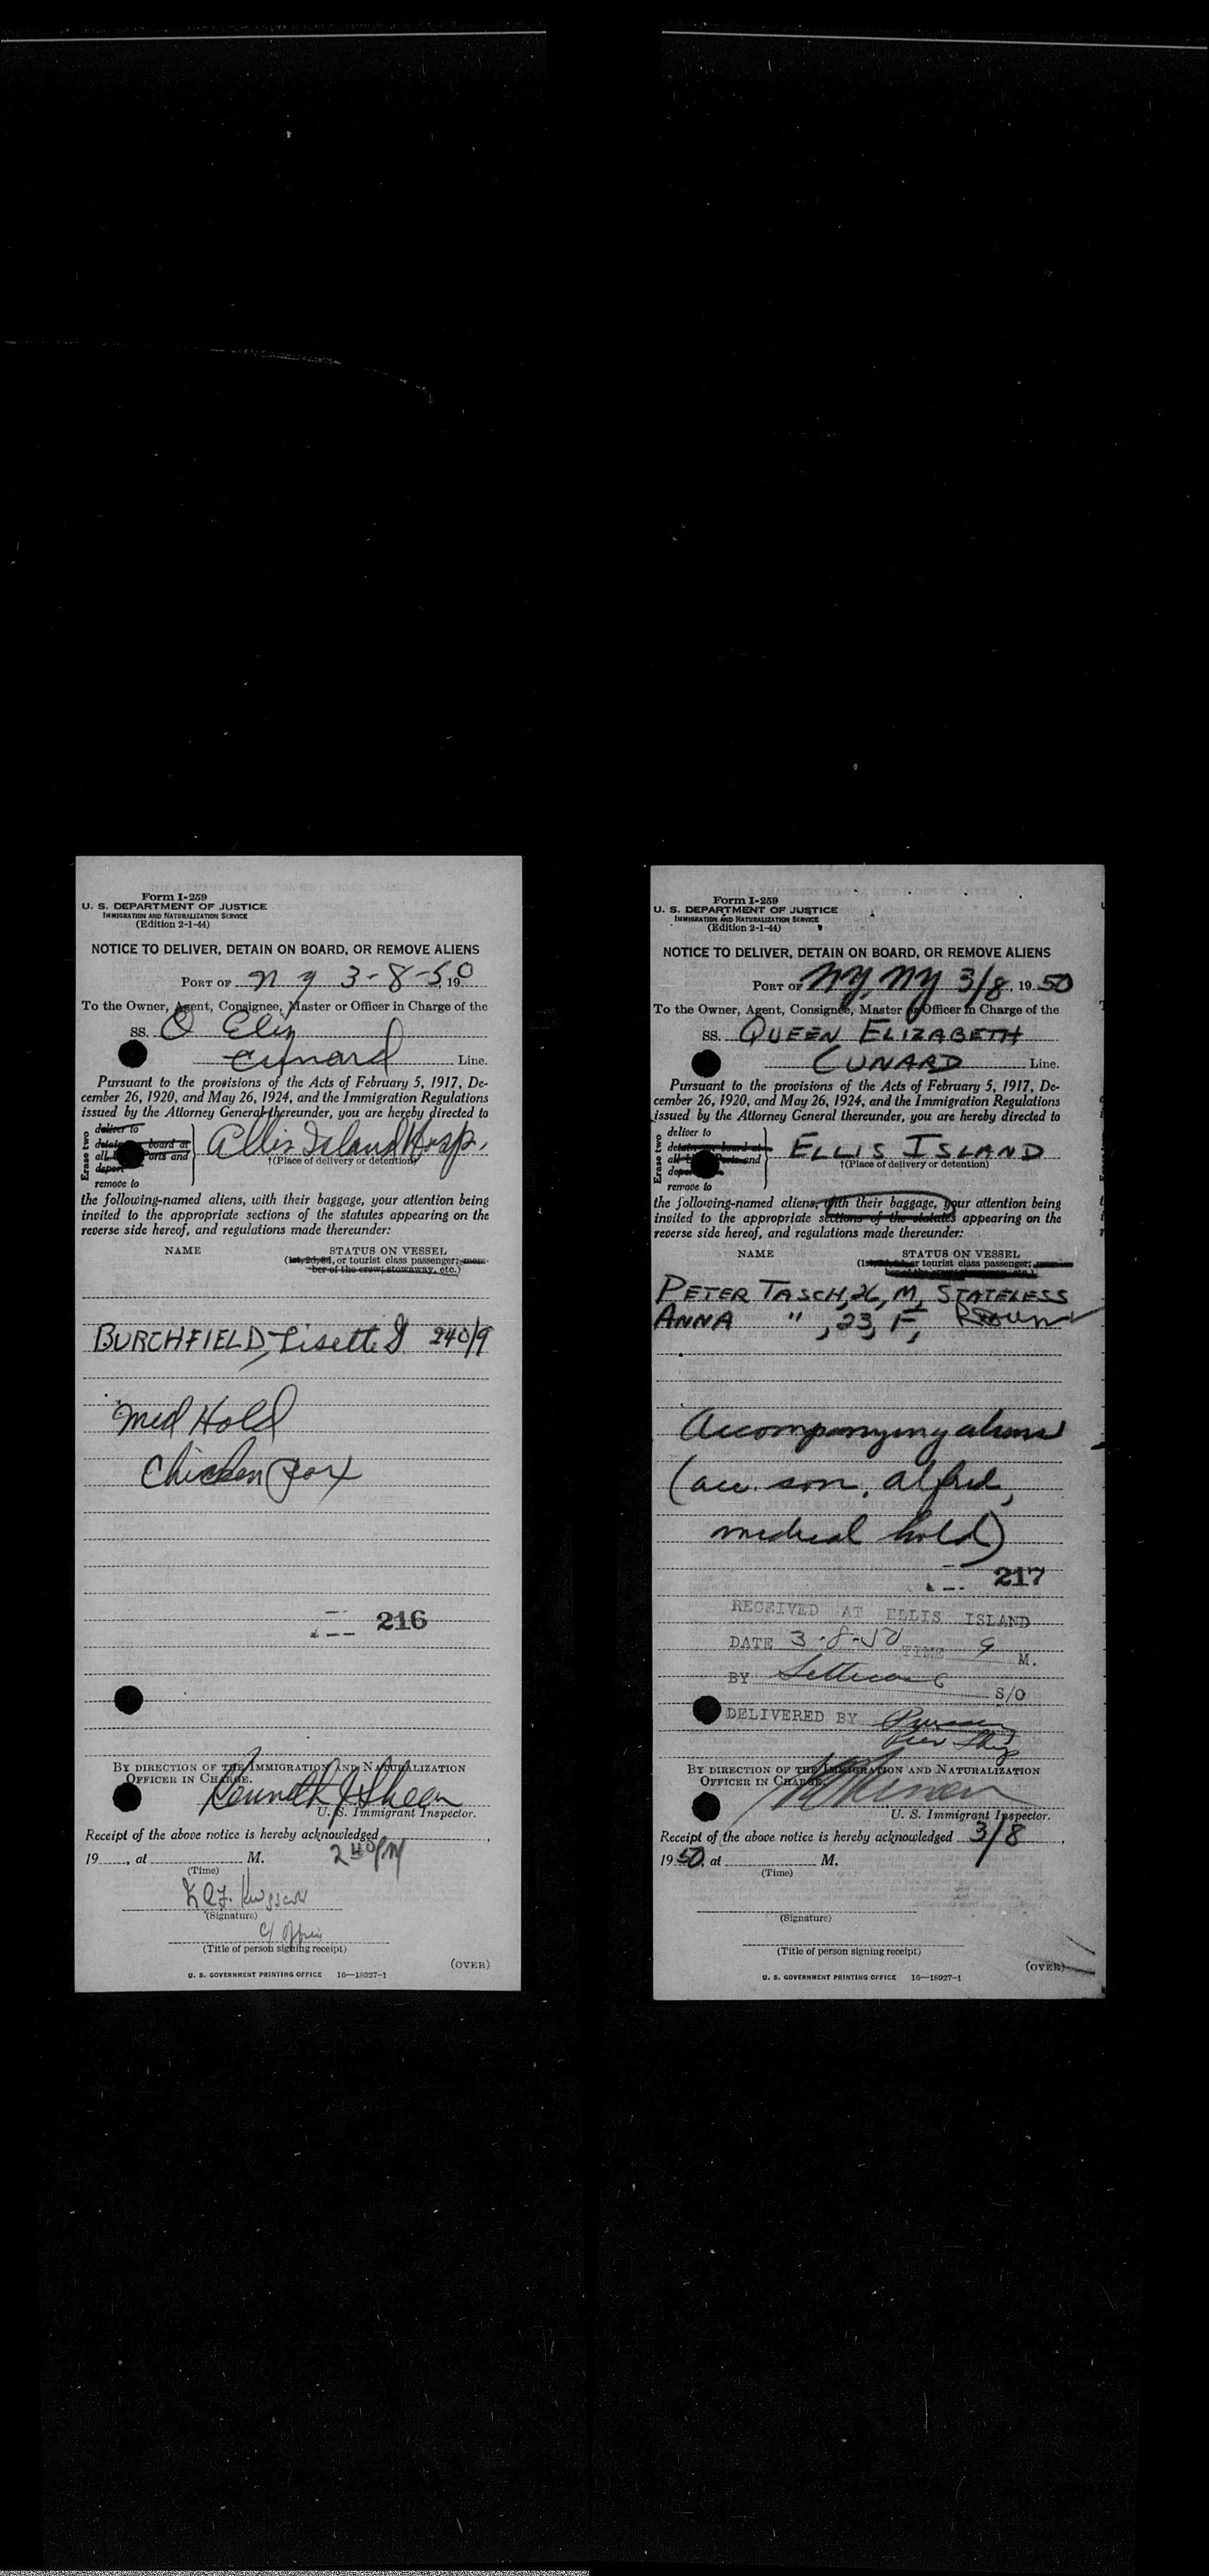 Form I-259
U. S. DEPARTMENT OF JUSTICE
IMMIGRATION AND NATURALIZATION SERVICE
(Edition 2-1-44)
NOTICE TO DELIVER, DETAIN ON BOARD, OR REMOVE ALIENS
PORT OF N Y 3-8-50, 19
To the Owner, Agent, Consignee, Master or Officer in Charge of the
SS. Q Eliz
Cunard Line.
Pursuant to the provisions of the Acts of February 5, 1917, De-
cember 26, 1920, and May 26, 1924, and the Immigration Regulations
issued by the Attorney General thereunder, you are hereby directed to
Erase two
deliver to
detain board at
all Ports and
deport
remove to
Ellis Island Hosp.
†(Place of delivery or detention)
the following-named aliens, with their baggage, your attention being
invited to the appropriate sections of the statutes appearing on the
reverse side hereof, and regulations made thereunder:
NAME STATUS ON VESSEL
(1st, 2d, 3d, or tourist class passenger; mem-
ber of the crew; stowaway, etc.)
BURCHFIELD, Lisette G 240/9
Med Hold
Chicken Pox
216
BY DIRECTION OF THE IMMIGRATION AND NATURALIZATION
OFFICER IN CHARGE.
Kenneth J Sheen
U. S. Immigrant Inspector.
Receipt of the above notice is hereby acknowledged
19 , at M. 2 40 PM
(Time)
(Signature)
(Title of person signing receipt)
(OVER)
U. S. GOVERNMENT PRINTING OFFICE 16—18927-1
Form I-259
U. S. DEPARTMENT OF JUSTICE
IMMIGRATION AND NATURALIZATION SERVICE
(Edition 2-1-44)
NOTICE TO DELIVER, DETAIN ON BOARD, OR REMOVE ALIENS
PORT OF NY, NY 3/8, 19 50
To the Owner, Agent, Consignee, Master or Officer in Charge of the
SS. QUEEN ELIZABETH
CUNARD Line.
Pursuant to the provisions of the Acts of February 5, 1917, De-
cember 26, 1920, and May 26, 1924, and the Immigration Regulations
issued by the Attorney General thereunder, you are hereby directed to
Erase two
deliver to
detain on board at
all Ports and
deport
remove to
ELLIS ISLAND
†(Place of delivery or detention)
the following-named aliens, with their baggage, your attention being
invited to the appropriate sections of the statutes appearing on the
reverse side hereof, and regulations made thereunder:
NAME STATUS ON VESSEL
(1st, 2d, 3d, or tourist class passenger; mem-
ber of the crew; stowaway, etc.)
PETER TASCH, 26, M, STATELESS
ANNA ", 23, F,
Accompanying aliens
(acc. son, Alfred,
medical hold)
217
RECEIVED AT ELLIS ISLAND
DATE 3-8-50 TIME 9 M.
BY S/O
DELIVERED BY
BY DIRECTION OF THE IMMIGRATION AND NATURALIZATION
OFFICER IN CHARGE.
U. S. Immigrant Inspector.
Receipt of the above notice is hereby acknowledged 3/8,
19 50, at M.
(Time)
(Signature)
(Title of person signing receipt)
(OVER)
U. S. GOVERNMENT PRINTING OFFICE 16—18927-1